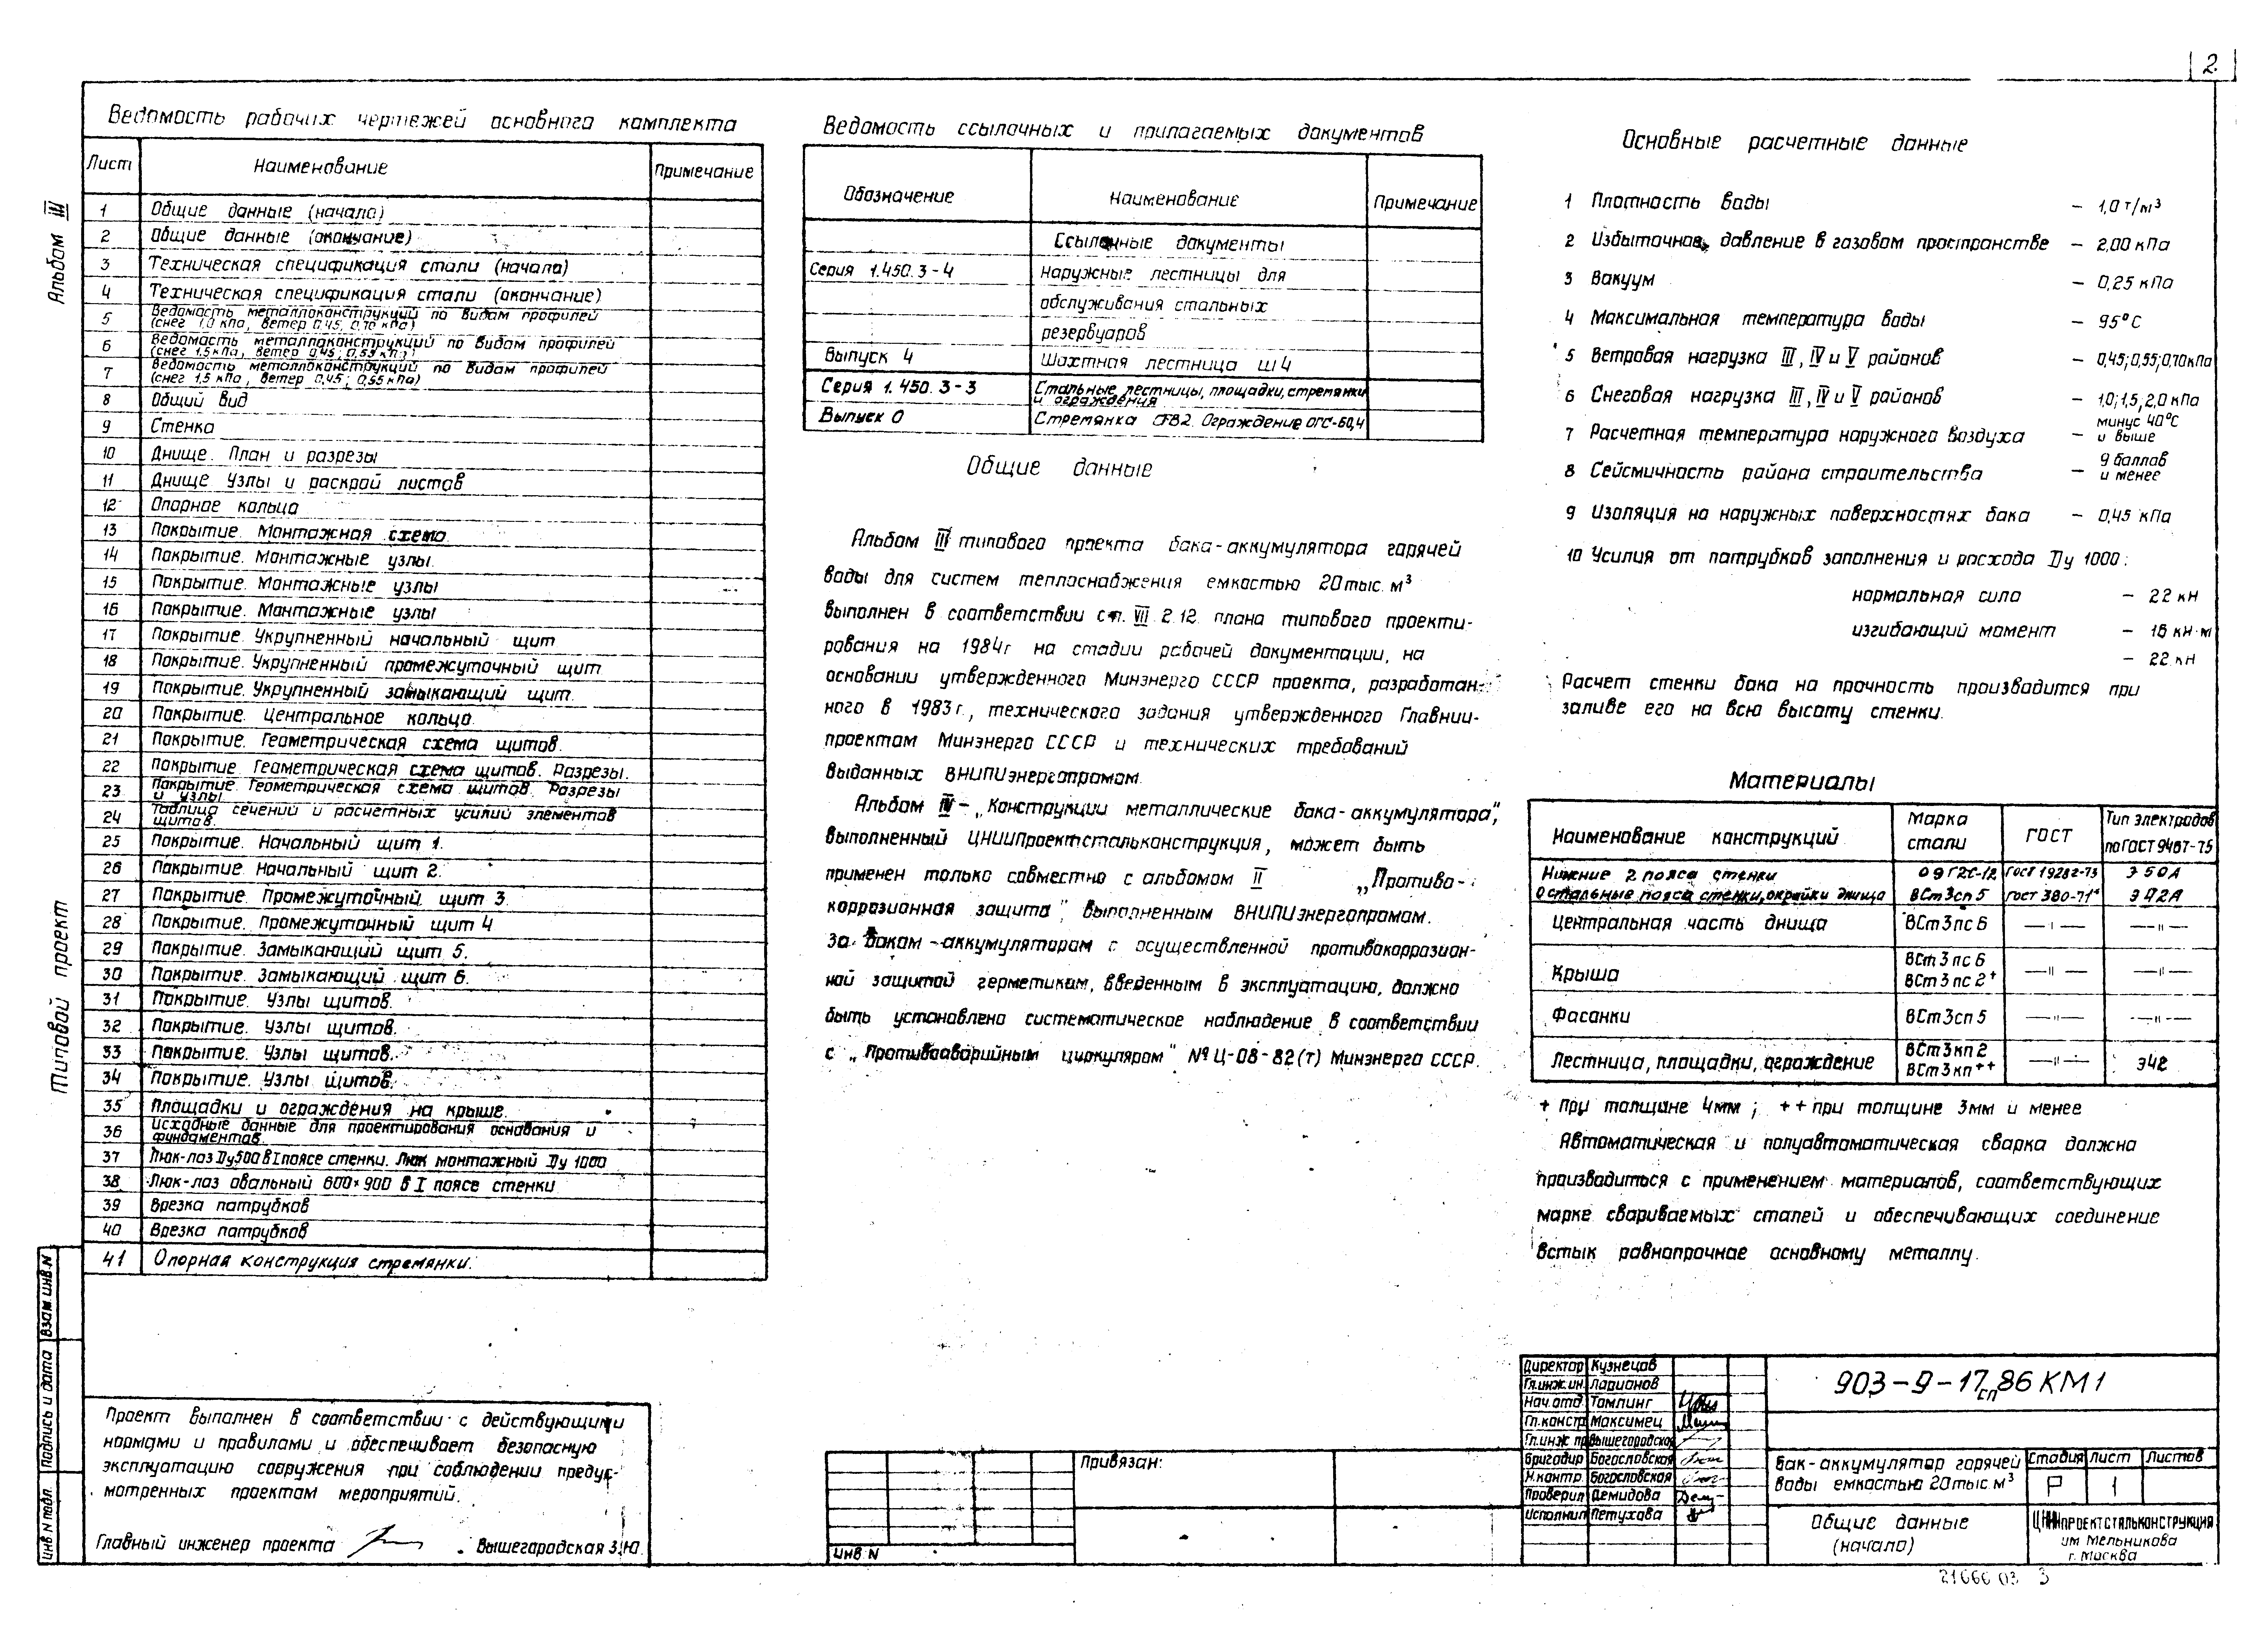 2
Альбом III
Типовой проект
Ведомость рабочих чертежей основного комплекта
Лист Наименование Примечание
1 Общие данные (начало)
2 Общие данные (окончание)
3 Техническая спецификация стали (начало)
4 Техническая спецификация стали (окончание)
5 Ведомость металлоконструкций по видам профилей
(снег 1,0 кПа, ветер 0,45; 0,70 кПа)
6 Ведомость металлоконструкций по видам профилей
(снег 1,5 кПа, ветер 0,45; 0,55 кПа)
7 Ведомость металлоконструкций по видам профилей
(снег 1,5 кПа, ветер 0,45; 0,55 кПа)
8 Общий вид
9 Стенка
10 Днище. План и разрезы
11 Днище Узлы и раскрой листов
12 Опорное кольцо
13 Покрытие. Монтажная схема
14 Покрытие. Монтажные узлы.
15 Покрытие. Монтажные узлы
16 Покрытие. Монтажные узлы
17 Покрытие. Укрупненный начальный щит
18 Покрытие. Укрупненный промежуточный щит
19 Покрытие. Укрупненный замыкающий щит.
20 Покрытие. Центральное кольцо.
21 Покрытие. Геометрическая схема щитов.
22 Покрытие. Геометрическая схема щитов. Разрезы.
23 Покрытие. Геометрическая схема щитов. Разрезы
и узлы
24 Таблица сечений и расчетных усилий элементов
щитов.
25 Покрытие. Начальный щит 1.
26 Покрытие. Начальный щит 2.
27 Покрытие. Промежуточный щит 3.
28 Покрытие. Промежуточный щит 4
29 Покрытие. Замыкающий щит 5.
30 Покрытие. Замыкающий щит 6.
31 Покрытие. Узлы щитов.
32 Покрытие. Узлы щитов.
33 Покрытие. Узлы щитов.
34 Покрытие. Узлы щитов.
35 Площадки и ограждения на крыше.
36 Исходные данные для проектирования основания и
фундаментов.
37 Люк-лаз Ду500 в I поясе стенки. Люк монтажный Ду 1000
38 Люк-лаз овальный 600×900 в I поясе стенки
39 Врезка патрубков
40 Врезка патрубков
41 Опорная конструкция стремянки.
Проект выполнен в соответствии с действующими
нормами и правилами и обеспечивает безопасную
эксплуатацию сооружения при соблюдении предус-
мотренных проектом мероприятий.
Главный инженер проекта Вышегородская З.Ю.
Взам. инв N
Подпись и дата
Инв N подл.
Ведомость ссылочных и прилагаемых документов
Обозначение Наименование Примечание
Ссылочные документы
Серия 1.450.3-4 Наружные лестницы для
обслуживания стальных
резервуаров
Выпуск 4 Шахтная лестница Ш4
Серия 1.450.3-3 Стальные лестницы, площадки, стремянки
и ограждения
Выпуск 0 Стремянка Ограждение ОГС-60,4
Общие данные
Альбом III типового проекта бака-аккумулятора горячей
воды для систем теплоснабжения емкостью 20 тыс. м³
выполнен в соответствии с п. VII 2.12. плана типового проекти-
рования на 1984г на стадии рабочей документации, на
основании утвержденного Минэнерго СССР проекта, разработан-
ного в 1983г., технического задания утвержденного Главнии-
проектом Минэнерго СССР и технических требований
выданных ВНИПИэнергопромом.
Альбом IV - „Конструкции металлические бака-аккумулятора",
выполненный ЦНИИПроектстальконструкция, может быть
применен только совместно с альбомом II „Противо-
коррозионная защита", выполненным ВНИПИэнергопромом.
За баком-аккумулятором с осуществленной противокоррозион-
ной защитой герметиком, введенным в эксплуатацию, должно
быть установлено систематическое наблюдение в соответствии
с „Противоаварийным циркуляром" № Ц-08-82(т) Минэнерго СССР.
Привязан:
Инв N
Основные расчетные данные
1 Плотность воды – 1,0 т/м³
2 Избыточное давление в газовом пространстве – 2,00 кПа
3 Вакуум – 0,25 кПа
4 Максимальная температура воды – 95°С
5 Ветровая нагрузка III, IV и V районов – 0,45; 0,55; 0,70 кПа
6 Снеговая нагрузка III, IV и V районов – 1,0; 1,5; 2,0 кПа
7 Расчетная температура наружного воздуха – минус 40°С
и выше
8 Сейсмичность района строительства – 9 баллов
и менее
9 Изоляция на наружных поверхностях бака – 0,45 кПа
10 Усилия от патрубков заполнения и расхода Ду 1000:
нормальная сила – 22 кН
изгибающий момент – 16 кН·м
– 22 кН
Расчет стенки бака на прочность производится при
заливе его на всю высоту стенки.
Материалы
Наименование конструкций Марка стали ГОСТ Тип электродов по ГОСТ 9467-75
Нижние 2 пояса стенки 09Г2С-12 ГОСТ 19282-73 Э50А
Остальные пояса стенки, окрайки днища ВСт3сп5 ГОСТ 380-71* Э42А
Центральная часть днища ВСт3пс6 —„— —„—
Крыша ВСт3пс6 —„— —„—
ВСт3пс2+
Фасонки ВСт3сп5 —„— —„—
Лестница, площадки, ограждение ВСт3кп2 —„— Э42
ВСт3кп++
+ при толщине 4мм; ++ при толщине 3мм и менее
Автоматическая и полуавтоматическая сварка должна
производиться с применением материалов, соответствующих
марке свариваемых сталей и обеспечивающих соединение
встык равнопрочное основному металлу.
Директор Кузнецов
Гл.инж.ин. Ларионов
Нач.отд Томлинг
Гл.констр Максимец
Гл.инж пр Вышегородская
Бригадир Богословская
Н.контр. Богословская
Проверил Демидова
Исполнил Петухова
903-9-17сп86 КМ1
Бак-аккумулятор горячей
воды емкостью 20 тыс. м³
Стадия Лист Листов
Р 1
Общие данные
(начало)
ЦНИИПРОЕКТСТАЛЬКОНСТРУКЦИЯ
им Мельникова
г. Москва
21666 03 3